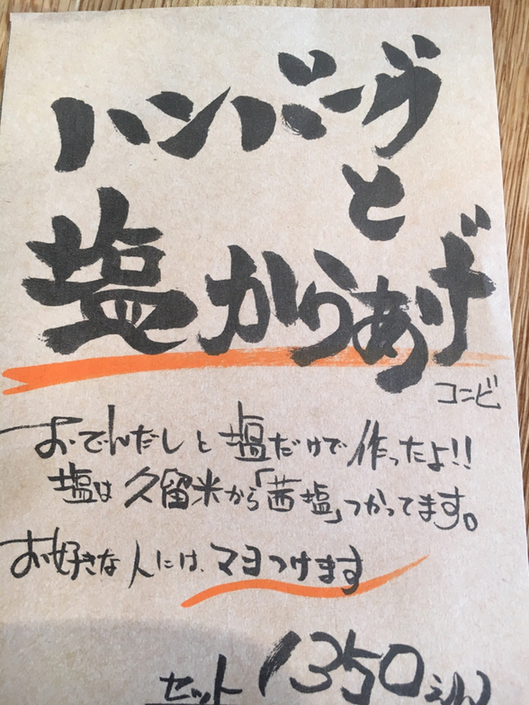 ハンバーグ
と
塩からあげ
コンビ
おでんだしと塩だけで作ったよ!!
塩は久留米から「茜塩」つかってます。
お好きな人には、マヨつけます
セット1350えん